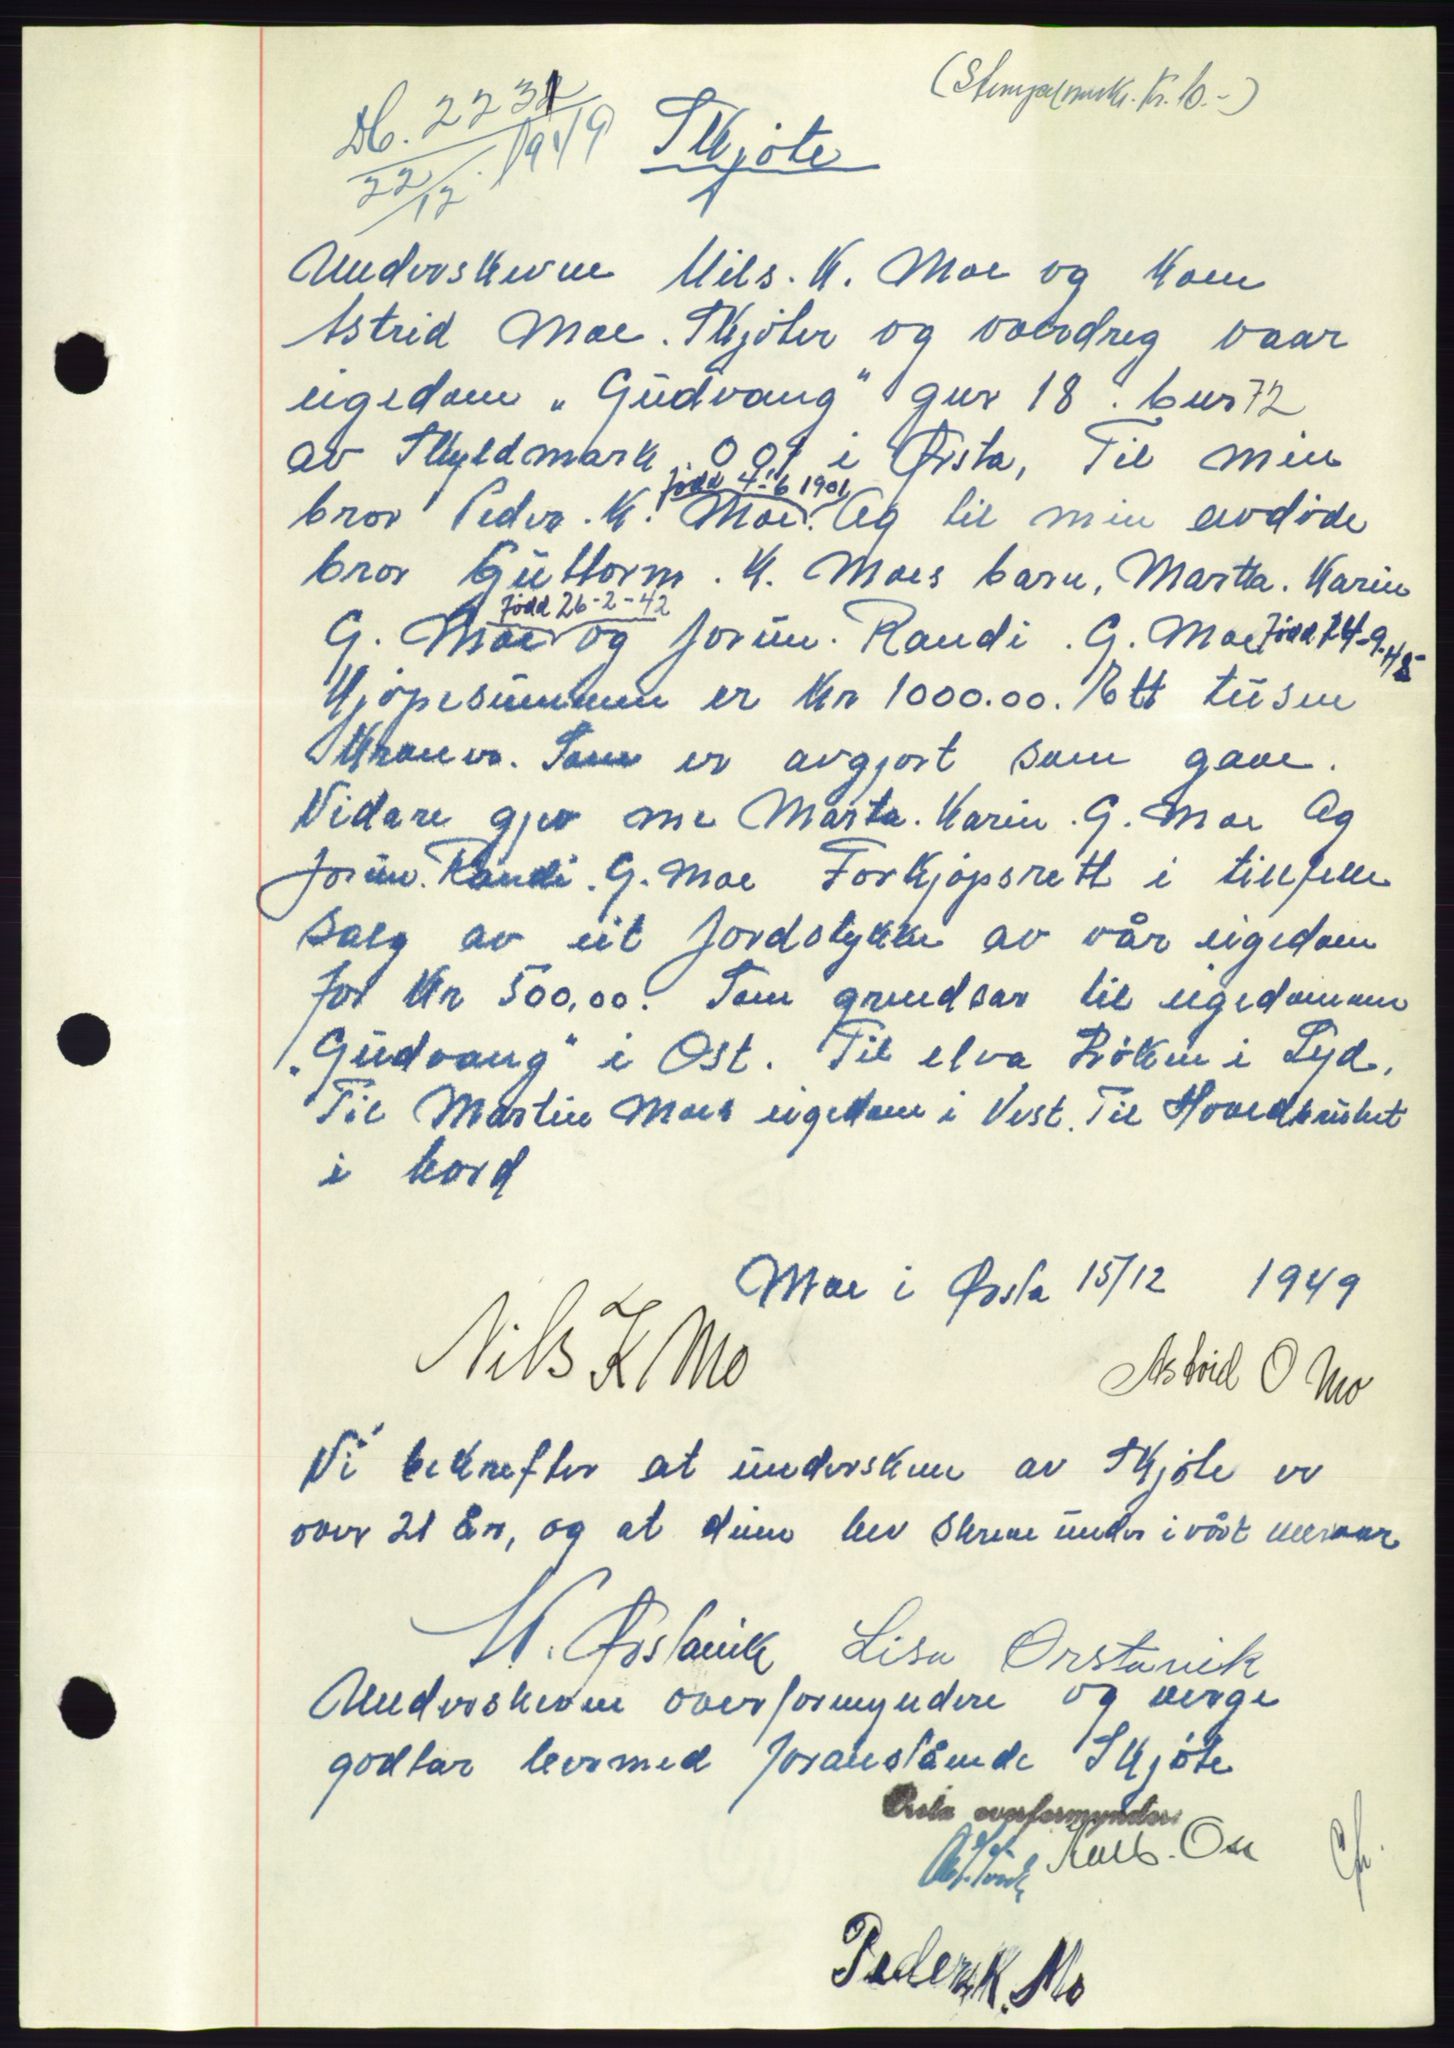 (Stempelmerke. Kr. 10.-)
Db. 2231
22/12. 1949
Skjöte
Underskrivne Nils. K. Moe og Kone
Astrid Moe. Skjöter og overdreg vaar
eigedom „Gudvang" gnr 18. bnr 72
av Skyldmark 0 01 i Ørsta, Til min
född 4-6 1901
bror Peder. K. Moe. Og til min avdöde
bror Guttorm. K. Moes barn, Marta. Karin
född 26-2-42
G. Moe og Jorun. Randi. G. Moe född 24-9-45
Kjöpesummen er Kr 1000.00. Ett tusen
Kroner. Som er avgjort som gave.
Vidare gjev me Marta. Karin. G. Moe Og
Jorun. Randi. G. Moe Forkjöpsrett i tilfelle
Salg av eit Jordstykke av vår eigedom
for Kr 500,00. Som grendsar til eigedommen
„Gudvang" i Ost. Til elva i Syd.
Til Martin Moes eigedom i Vest. Til
i Nord
Moe i Ørsta 15/12 1949
Nils K Mo
Astrid O Mo
Vi bekrefter at underskrivne av Skjöte er
over 21 år, og at disse hev Skreve under i vårt nervær
N. Ørstavik Lisa Orstavik
Underskrivne overformyndere og verge
godtar hermed foranstående Skjöte
Ørsta overformynderi
Peder K. Mo